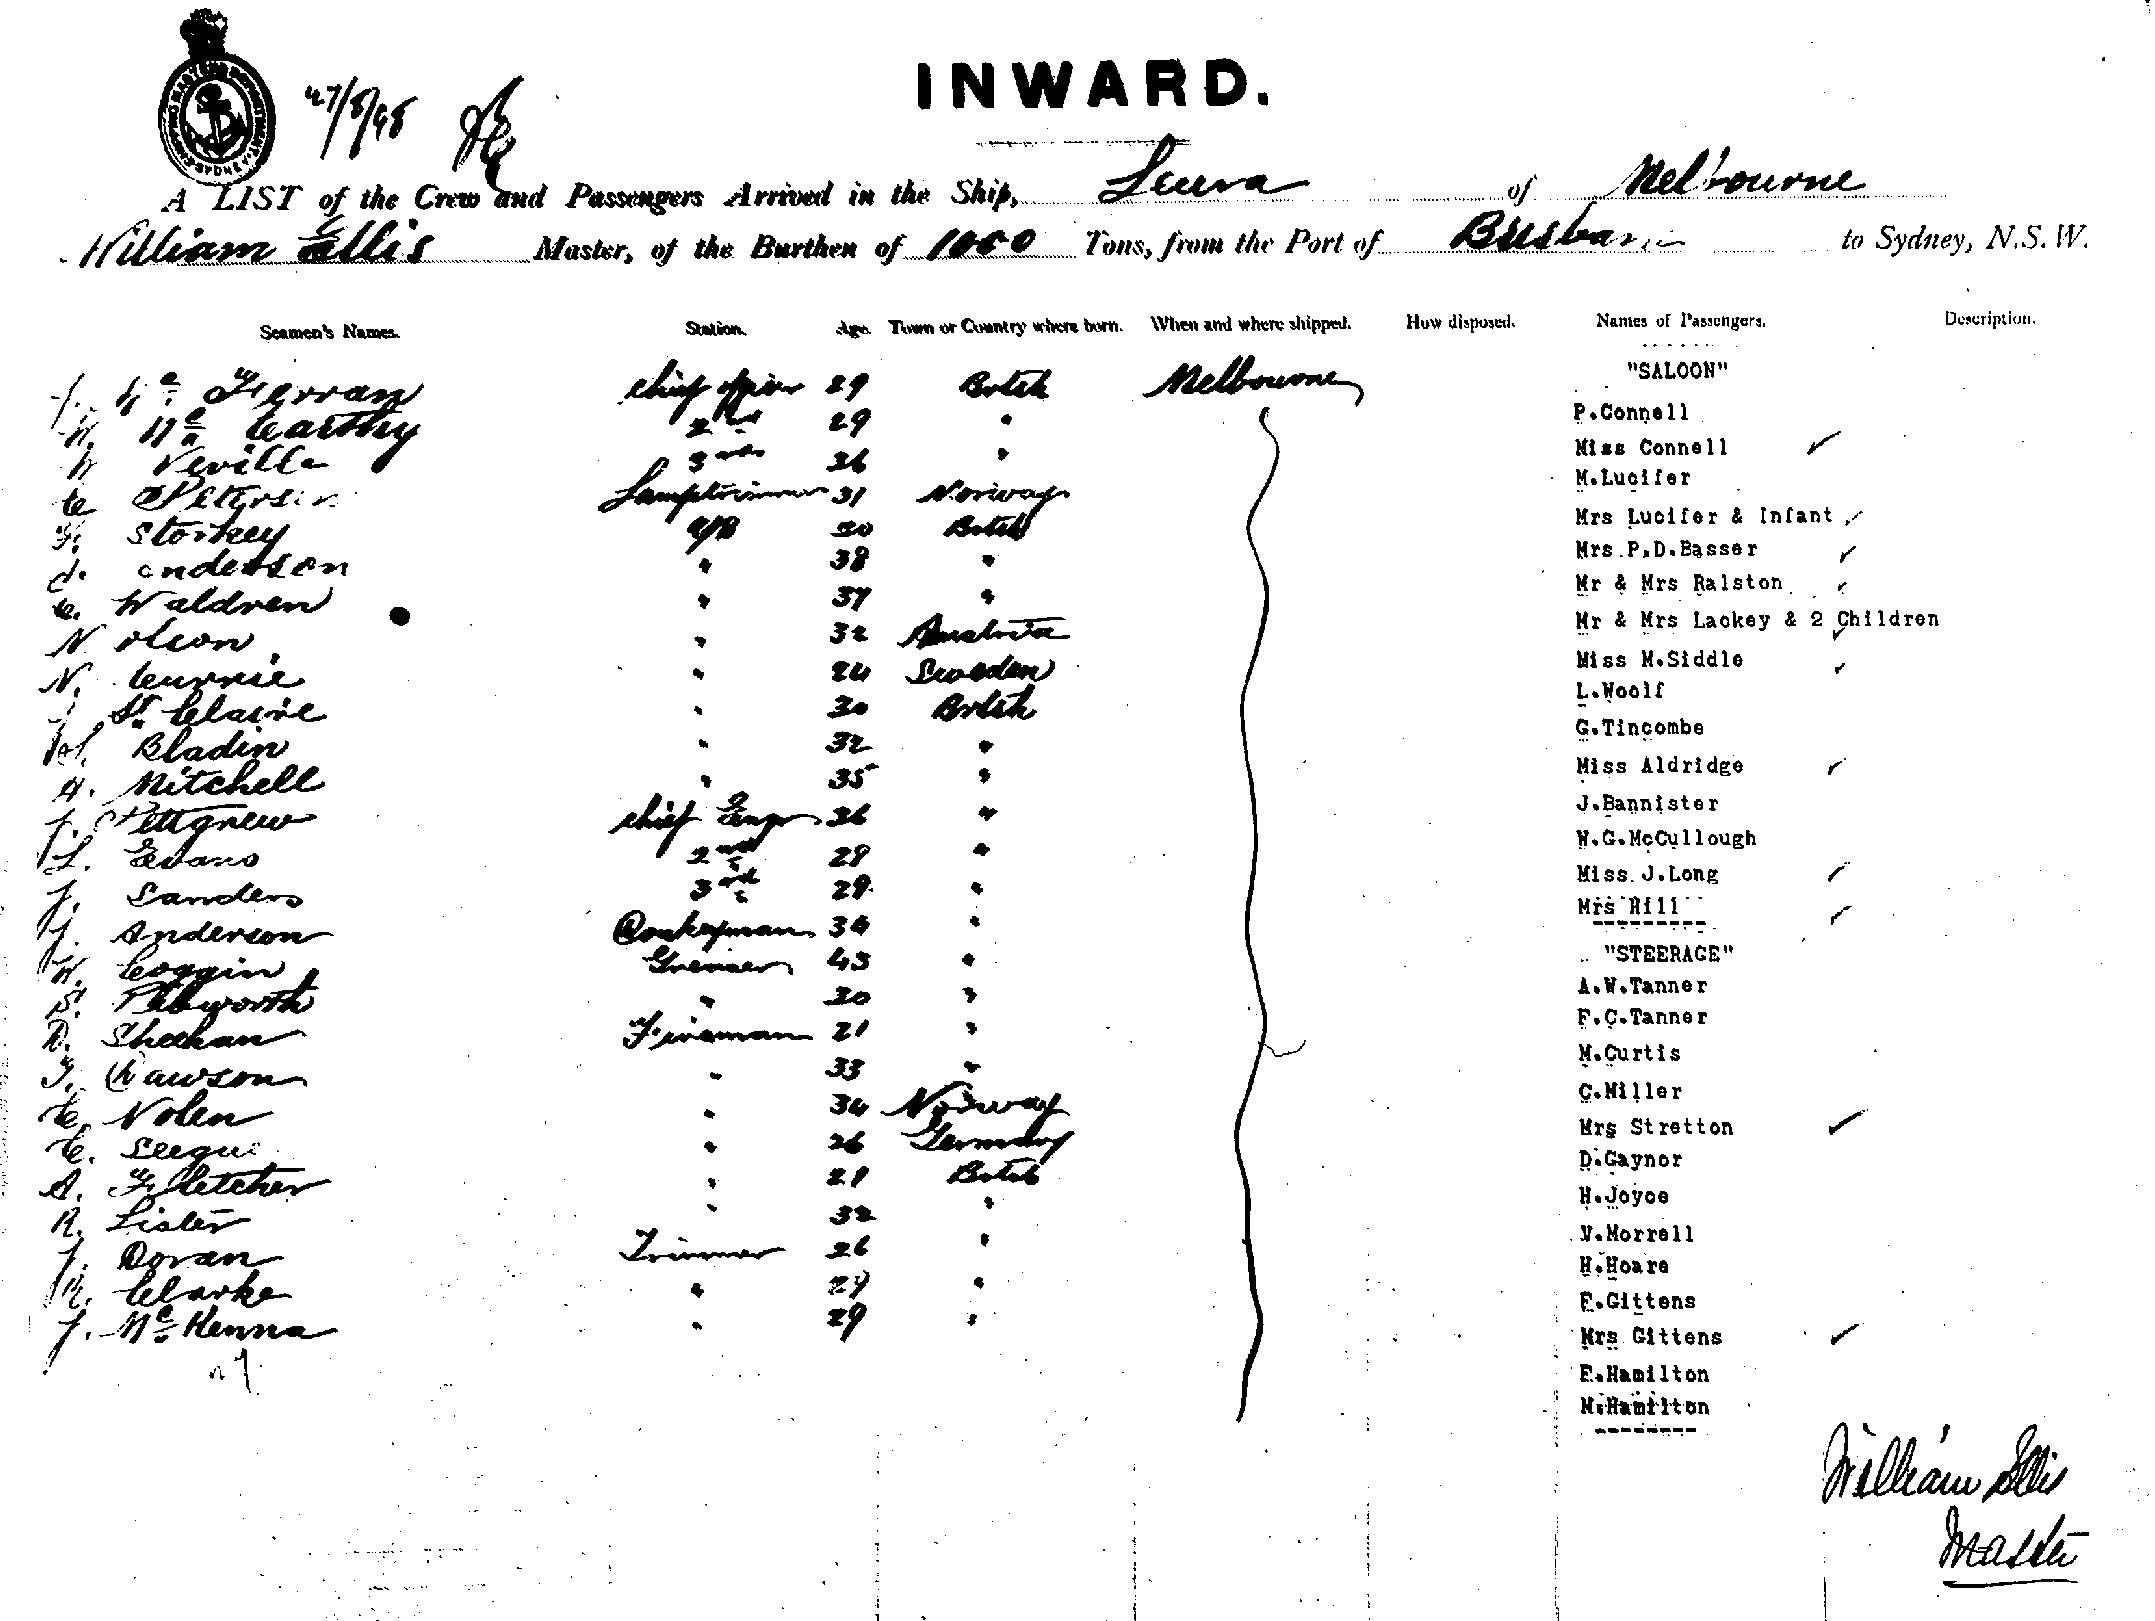 27/8/98
INWARD.
A LIST of the Crew and Passengers Arrived in the Ship, Leura of Melbourne
William Ellis Master, of the Burthen of 1000 Tons, from the Port of Brisbane to Sydney, N.S.W.
Seamen's Names. Station. Age. Town or Country where born. When and where shipped. How disposed. Names of Passengers. Description.
"SALOON"
Mc Ferran chief officer 29 British Melbourne
P.Connell
W. Mc Carthy 2nd 29 "
Miss Connell
W Neville 3rd 26 "
M.Lucifer
C Petersen Lamptrimmer 31 Norway
Mrs Lucifer & Infant
F. Storkey A/B 30 British
Mrs.P.D.Basser
d. anderson " 38 "
Mr & Mrs Ralston
C. Waldren " 37 "
Mr & Mrs Lackey & 2 Children
N olsen " 32 Austria
Miss M.Siddle
N. Currie " 24 Sweden
L.Woolf
St Claire " 30 British
G.Tincombe
Bladin " 32 "
Miss Aldridge
A. Mitchell " 35 "
J.Bannister
J. Pettgrew chief Engr 36 "
W.G.McCullough
L. Evans 2nd 28 "
Miss.J.Long
J. Sanders 3rd 29 "
Mrs Hill
J. Anderson Donkeyman 34 "
"STEERAGE"
W. Coggin Greaser 43 "
A.W.Tanner
S. Pebworth " 30 "
F.C.Tanner
D. Sheehan Fireman 21 "
M.Curtis
T. Dawson " 33 "
C.Miller
C. Nolen " 34 Norway
Mrs Stretton
C. " 26 Germany
D.Gaynor
A. Fletcher " 29 British
H.Joyce
R. Lister " 32 "
V.Morrell
J. Doran Trimmer 26 "
H.Hoare
R. Clarke " 29 "
E.Gittens
J. McKenna " 29 "
Mrs Gittens
27
E.Hamilton
M.Hamilton
William Ellis
Master